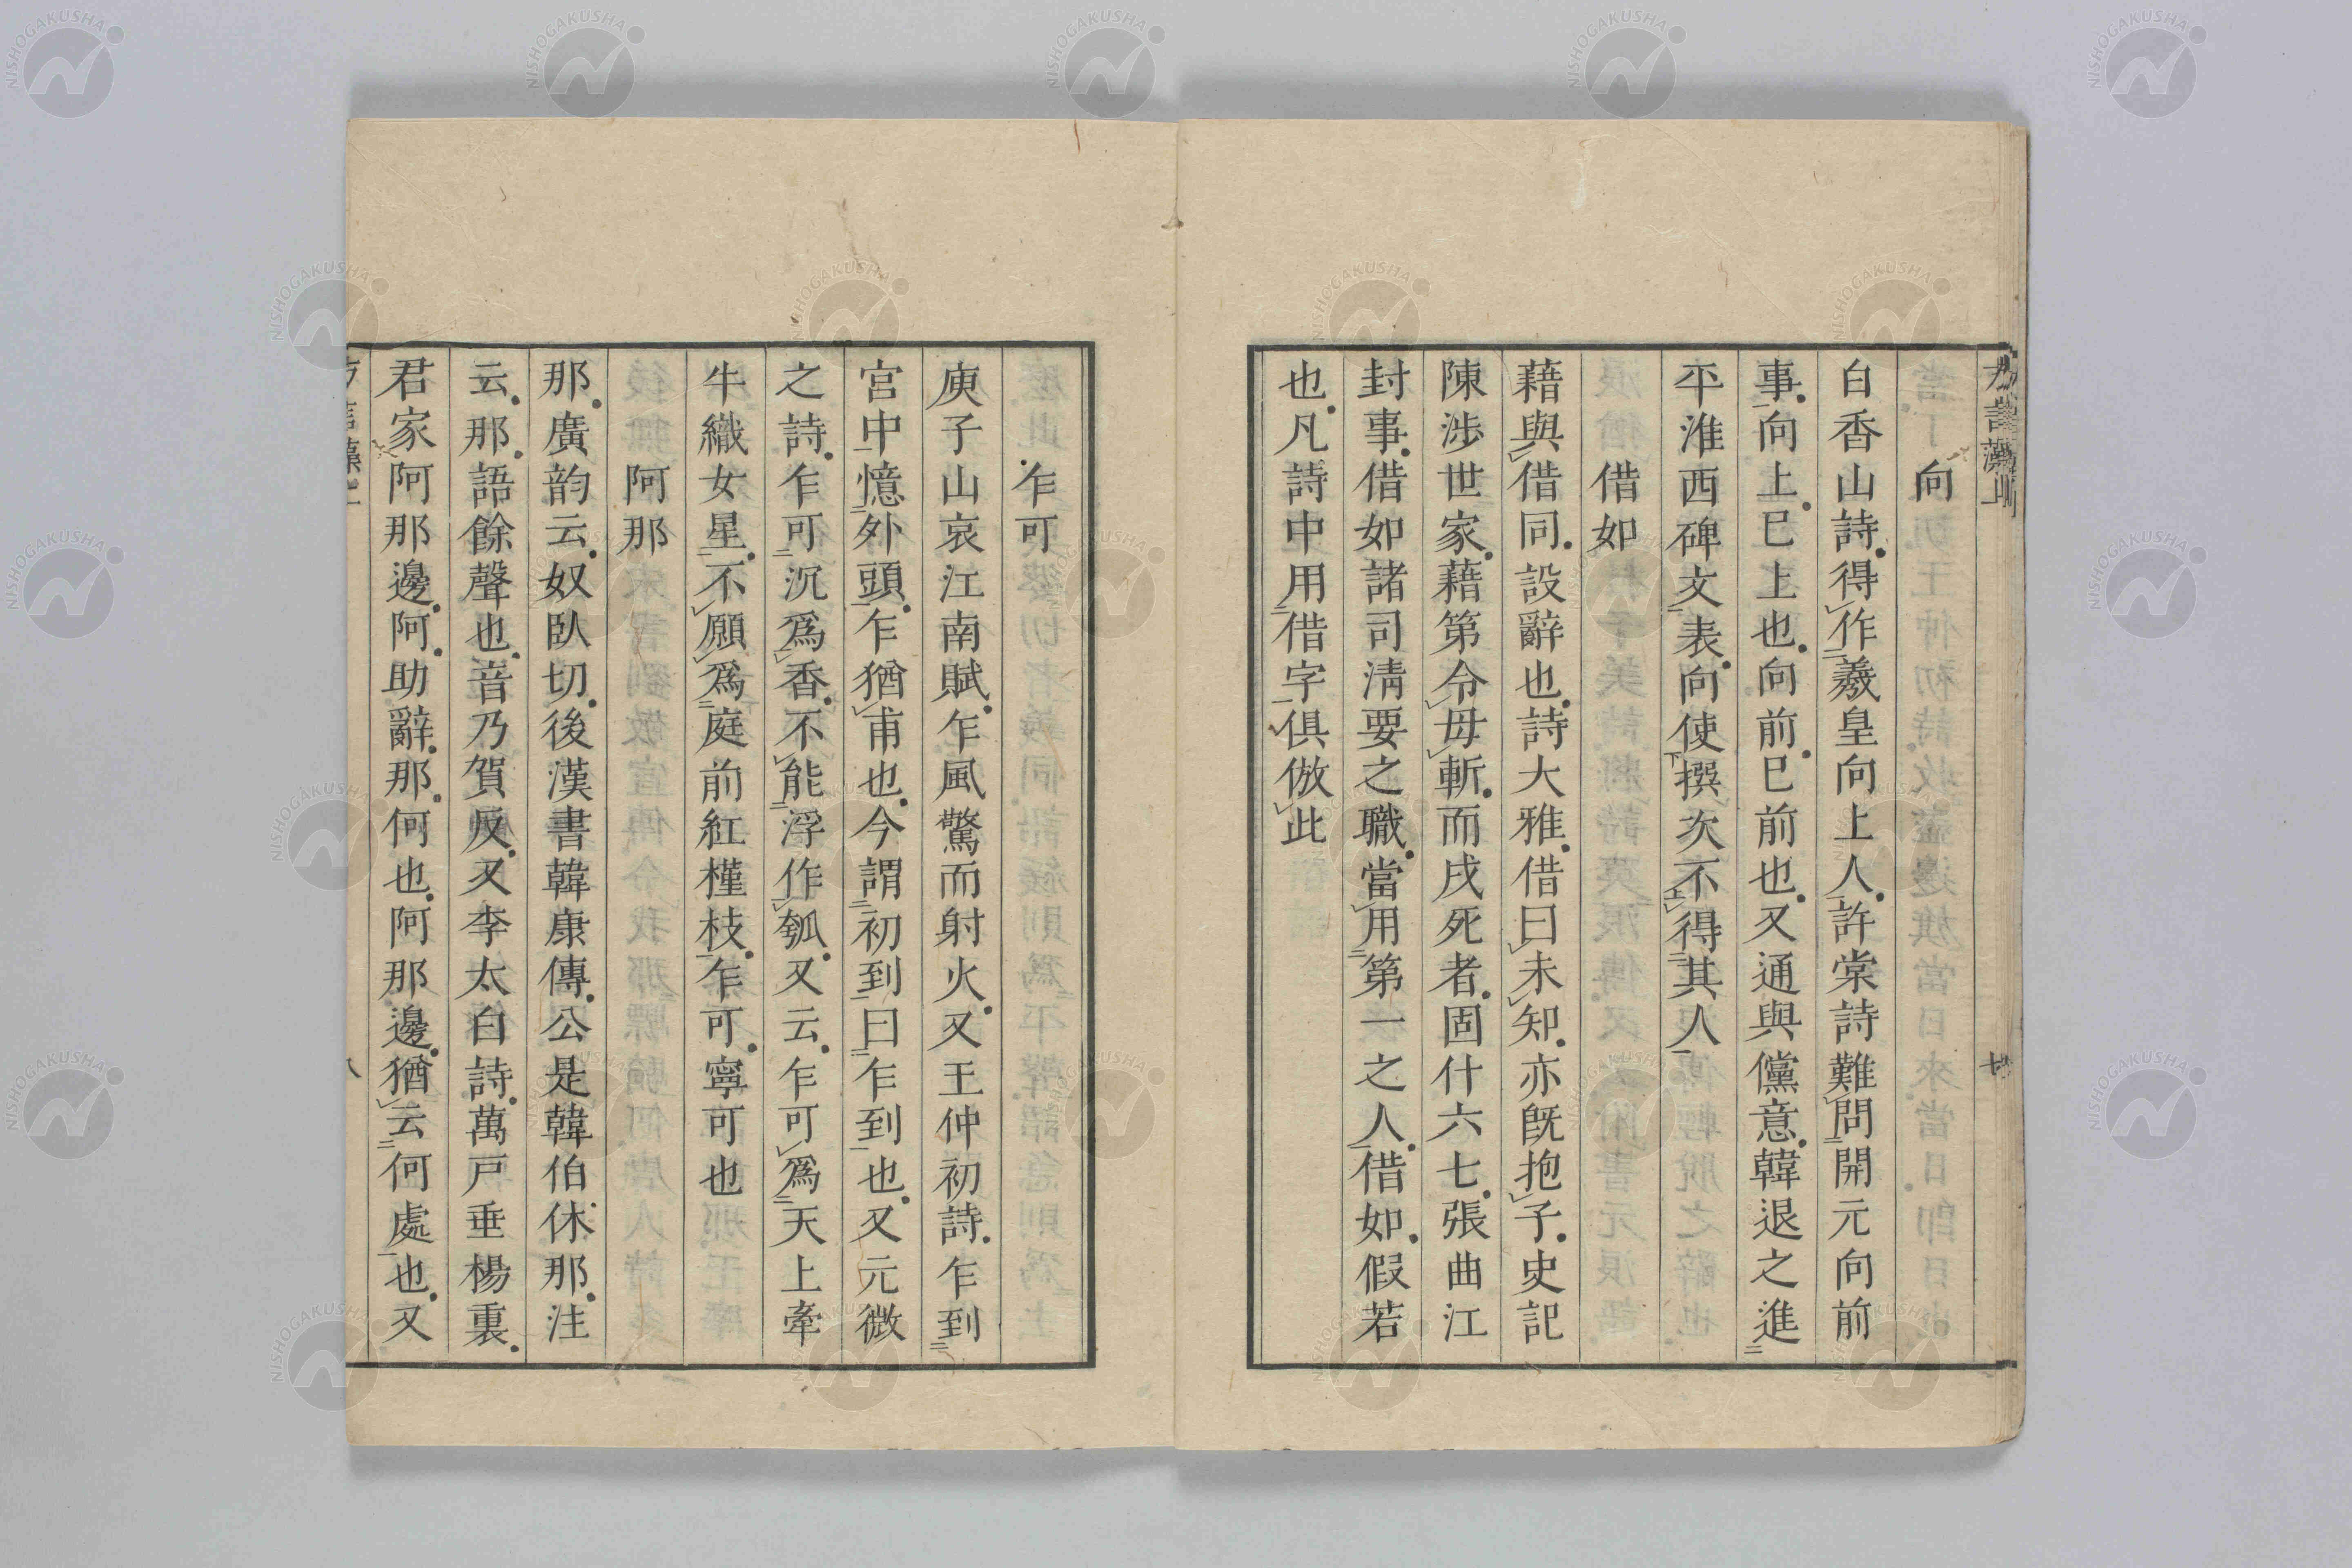 向
白香山詩得作羲皇向上人許棠詩難問開元向前
事向上已上也向前已前也又通與儻意韓退之進
平淮西碑文表向使撰次不得其人
借如
藉與借同設辭也詩大雅借曰未知亦旣抱子史記
陳涉世家藉第令毋斬而戍死者固什六七張曲江
封事借如諸司淸要之職當用第一之人借如假若
也凡詩中用借字俱倣此
乍可
庾子山哀江南賦乍風驚而射火又王仲初詩乍到
宮中憶外頭乍猶甫也今謂初到曰乍到也又元微
之詩乍可沉爲香不能浮作瓠又云乍可爲天上牽
牛織女星不願爲庭前紅槿枝乍可寧可也
阿那
那廣韵云奴臥切後漢書韓康傳公是韓伯休那注
云那語餘聲也音乃賀反又李太白詩萬戸垂楊裏
君家阿那邊阿助辭那何也阿那邊猶云何處也又
八
NISHOGAKUSHA